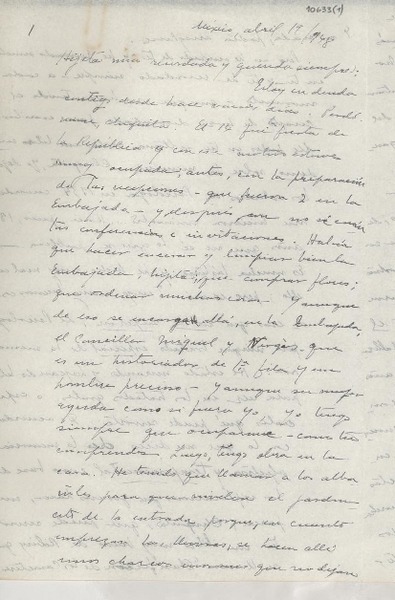 10633(1)
1
México, abril 19 1948
Hijita mía recordada y querida siempre:
Estoy en deuda
contigo desde hace varios días. Perdó-
name, chiquita. El 14 fué fiesta de
la República y con ese motivo estuve
muy ocupada; antes, en la preparación
de las recepciones – que fueron 2 en la
Embajada – y después con no sé cuán-
tas conferencias e invitaciones. Había
que hacer encerar y limpiar bien la
Embajada, hijita; que comprar flores;
que ordenar muchas cosas. Y aunque
de eso se encargó allá, en la Embajada,
el Consejero Miguel y Vergés, que
es un historiador de 1ª fila y un
hombre precioso – y aunque su mujer
ayuda como si fuera yo, yo tengo
siempre que ocuparme – como tú
comprendes. Luego, tengo obra en la
casa. He tenido que llamar a los alba-
ñiles para que nivelen el jardin-
cito de la entrada porque, en cuanto
empiezan las lluvias, se hacen allí
unos charcos que no dejan